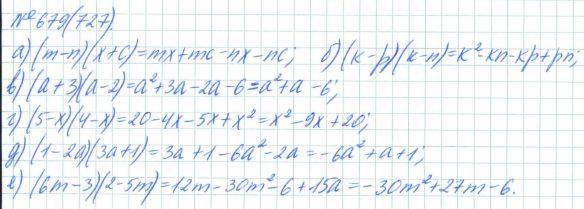 № 679(727).
а) (m-n)(x+c)=mx+mc-nx-nc; б) (k-p)(k-n)=k²-kn-kp+pn;
в) (a+3)(a-2)=a²+3a-2a-6=a²+a-6;
г) (5-x)(4-x)=20-4x-5x+x²=x²-9x+20;
д) (1-2a)(3a+1)=3a+1-6a²-2a=-6a²+a+1;
е) (6m-3)(2-5m)=12m-30m²-6+15a=-30m²+27m-6.